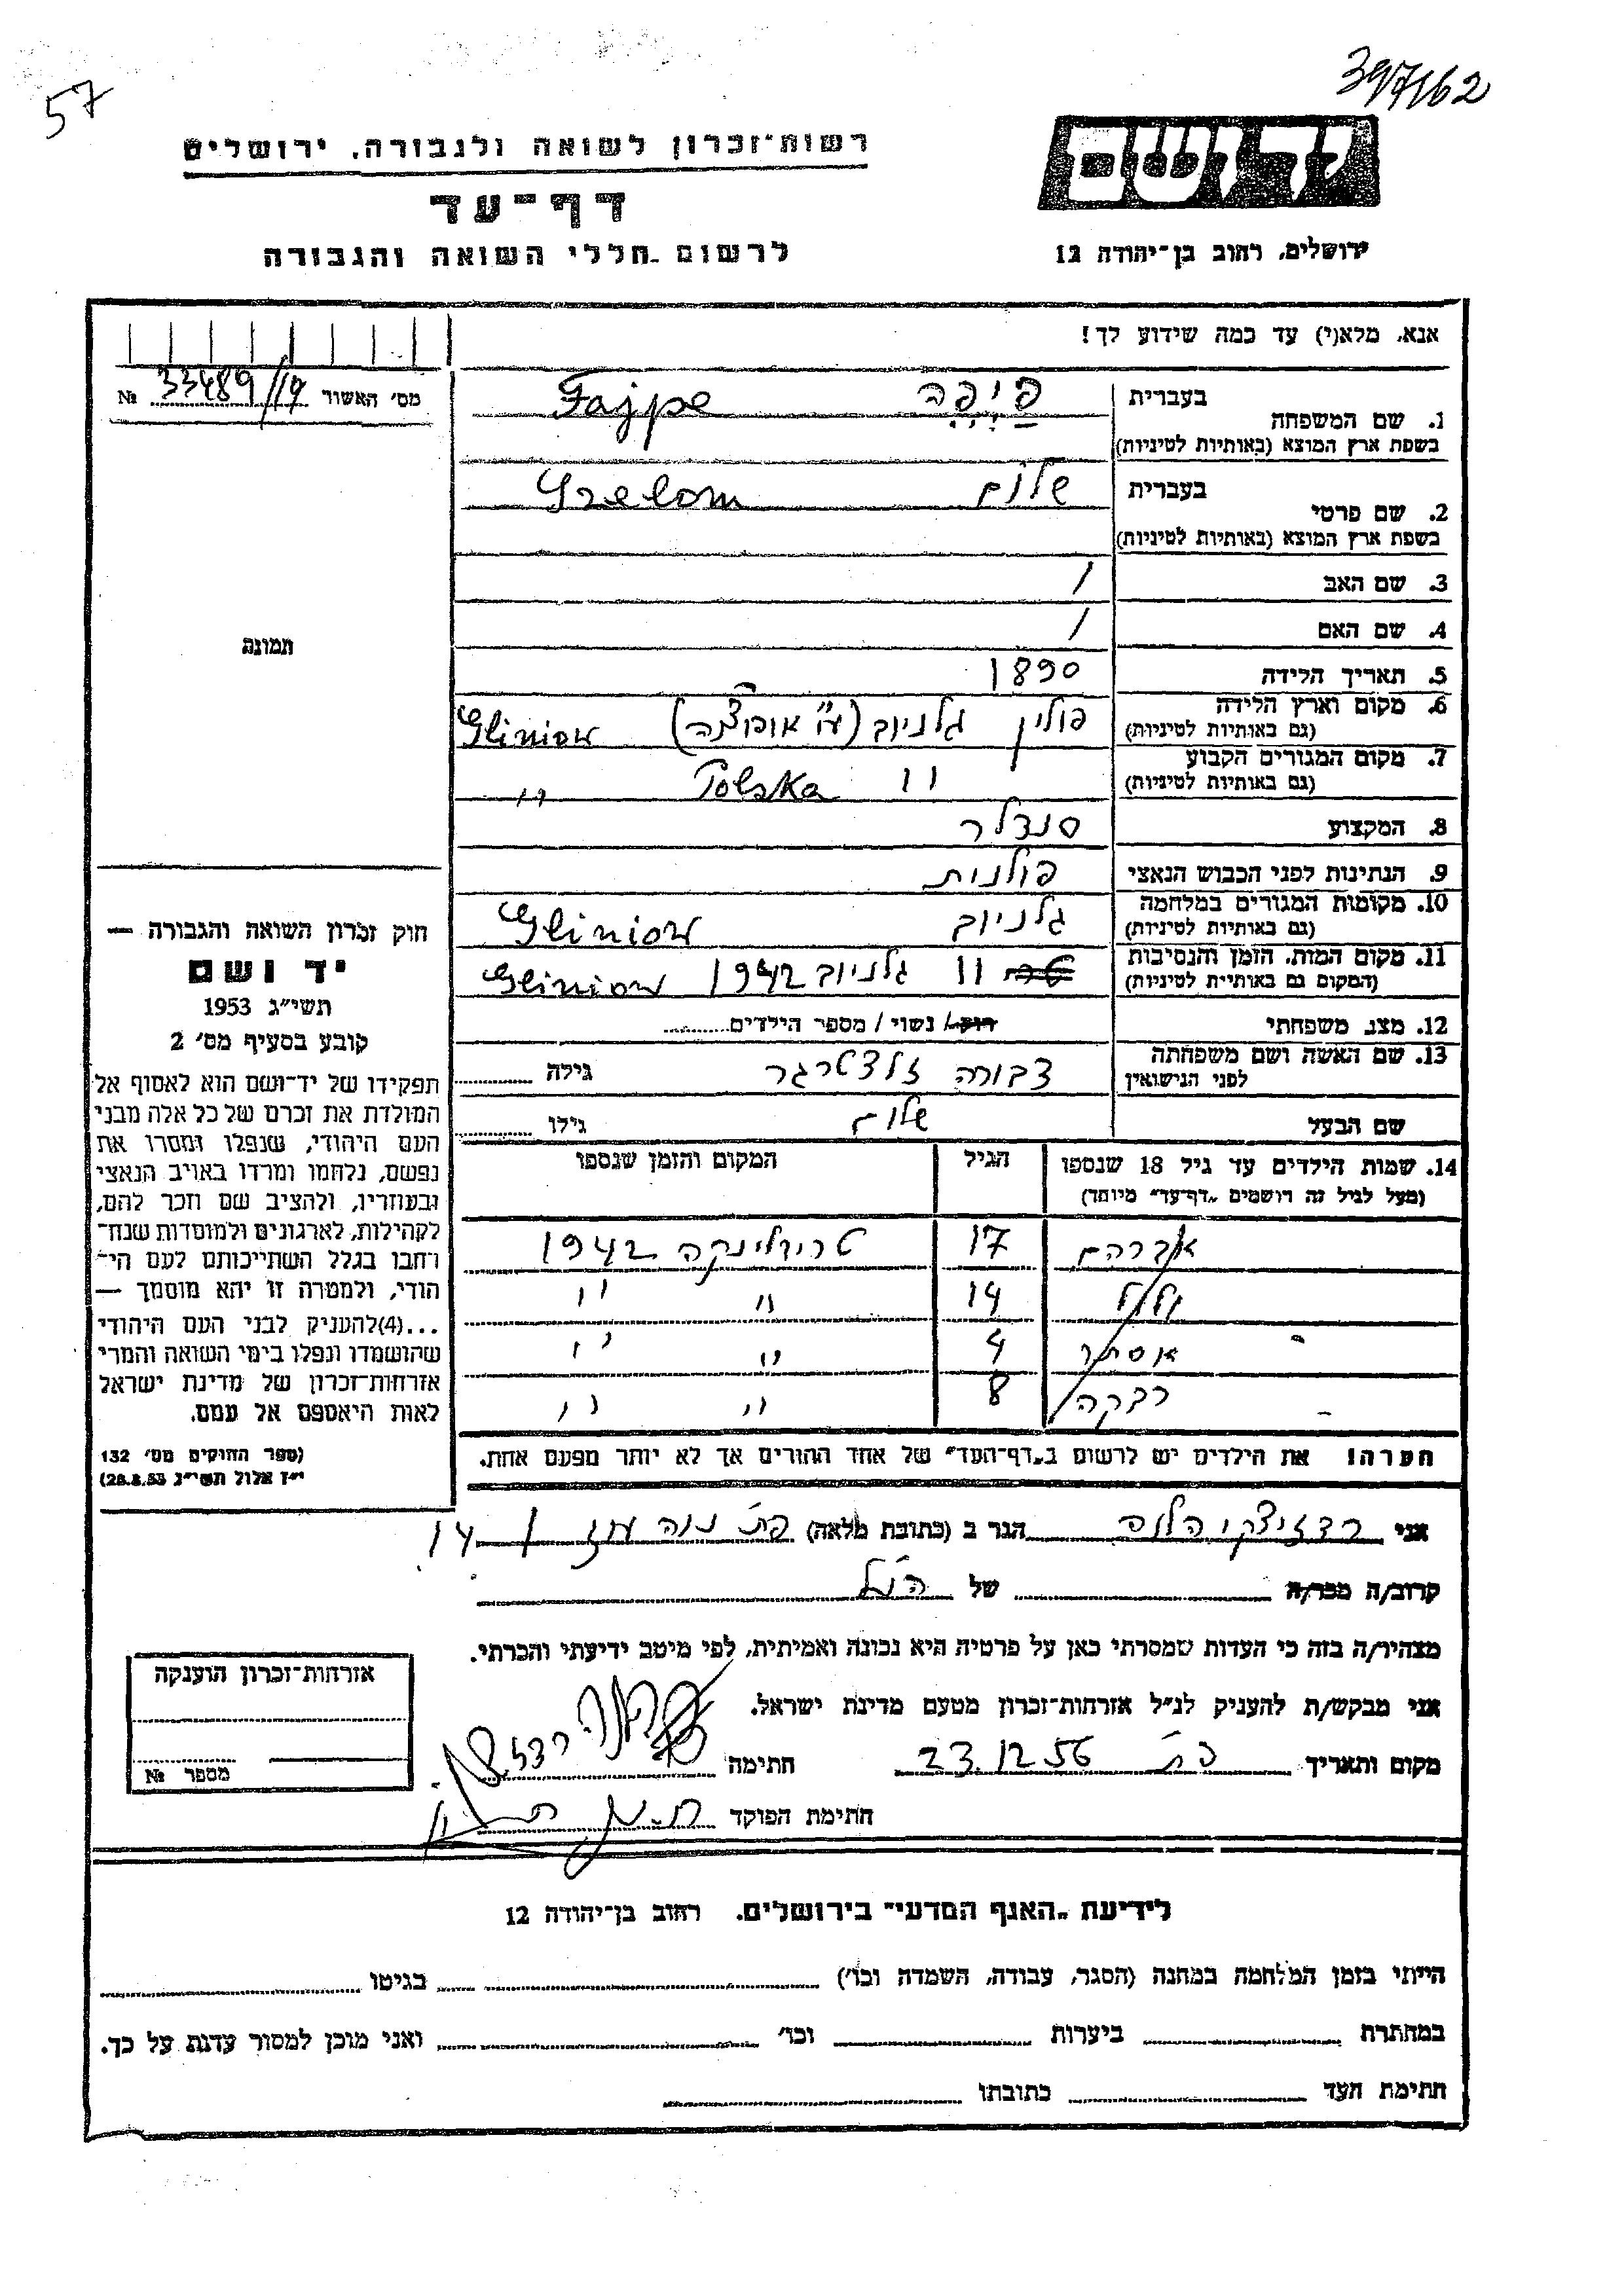 57
397162
יד ושם
רשות־זכרון לשואה ולגבורה, ירושלים
דף־עד
לרשום חללי השואה והגבורה
ירושלים, רחוב בן־יהודה 12
אנא, מלא(י) עד כמה שידוע לך!
מס' האשור 33489/19 №
1. שם המשפחה
בעברית פַיְפֶה Fajpe
בשפת ארץ המוצא (באותיות לטיניות)
2. שם פרטי
בעברית שלום Szelom
בשפת ארץ המוצא (באותיות לטיניות)
3. שם האב /
4. שם האם /
תמונה
5. תאריך הלידה 1890
6. מקום וארץ הלידה פולין גלניוב (ע"י אופוצנה) Gliniow
(גם באותיות לטיניות)
7. מקום המגורים הקבוע " Polska "
(גם באותיות לטיניות)
8. המקצוע סנדלר
9. הנתינות לפני הכבוש הנאצי פולנית
10. מקומות המגורים במלחמה גלניוב Gliniow
(גם באותיות לטיניות)
11. מקום המות, הזמן והנסיבות 11 גלניוב 1942 Gliniow
(המקום גם באותיות לטיניות)
12. מצב משפחתי רווק / נשוי / מספר הילדים
13. שם האשה ושם משפחתה לפני הנישואין דבורה זלצברגר גילה
שם הבעל שלום גילו
14. שמות הילדים עד גיל 18 שנספו הגיל המקום והזמן שנספו
(מעל לגיל זה רושמים „דף־עד” מיוחד)
אברהם 17 טרבלינקה 1942
14 " "
אסתר 4 " "
רבקה 8 " "
הערה! את הילדים יש לרשום ב„דף־העד” של אחד ההורים אך לא יותר מפעם אחת.
חוק זכרון השואה והגבורה —
יד ושם
תשי"ג 1953
קובע בסעיף מס' 2
תפקידו של יד־ושם הוא לאסוף אל
המולדת את זכרם של כל אלה מבני
העם היהודי, שנפלו ומסרו את
נפשם, נלחמו ומרדו באויב הנאצי
ובעוזריו, ולהציב שם וזכר להם,
לקהילות, לארגונים ולמוסדות שנח־
רבו בגלל השתייכותם לעם הי־
הודי, ולמטרה זו יהא מוסמך —
...(4)להעניק לבני העם היהודי
שהושמדו ונפלו בימי השואה והמרי
אזרחות־זכרון של מדינת ישראל
לאות היאספם אל עמם.
(ספר החוקים מס' 132
י"ז אלול תשי"ג 28.8.53)
אני הגר ב (כתובת מלאה) פת נוה עוז 14
קרוב/ה מכר/ה של הנ"ל
מצהיר/ה בזה כי העדות שמסרתי כאן על פרטיה היא נכונה ואמיתית, לפי מיטב ידיעתי והכרתי.
אני מבקש/ת להעניק לנ"ל אזרחות־זכרון מטעם מדינת ישראל.
מקום ותאריך פת 23.12.56 חתימה
חתימת הפוקד
אזרחות־זכרון הוענקה
מספר №
לידיעת „האגף המדעי” בירושלים. רחוב בן־יהודה 12
הייתי בזמן המלחמה במחנה (הסגר, עבודה, השמדה וכו') בגיטו
במחתרת ביערות וכו' ואני מוכן למסור עדות על כך.
חתימת העד כתובתו